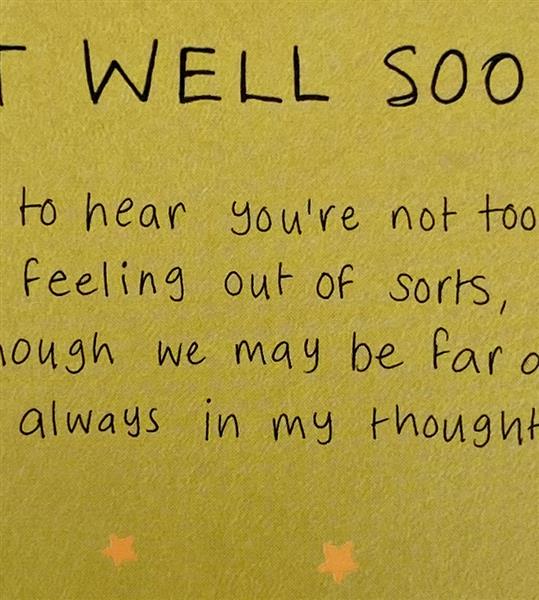 T WELL SOO
to hear you're not too
feeling out of sorts,
hough we may be far a
always in my thought